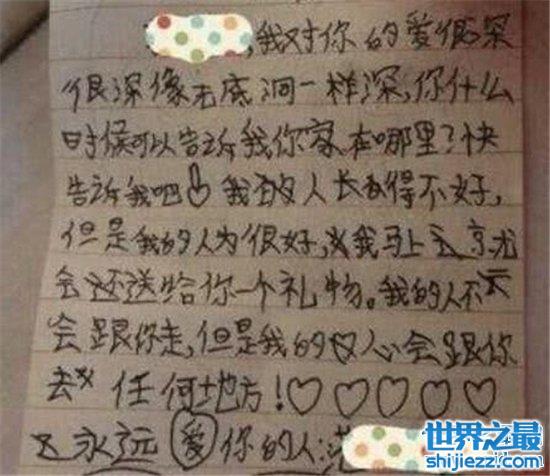 ,我对你的爱很深
很深像无底洞一样深,你什么
时候可以告诉我你家在哪里?快
告诉我吧 我的人长得不好,
但是我的人为很好,我马上就
会还送给你一个礼物。我的人不
会跟你走,但是我的心会跟你
去任何地方!♡♡♡♡♡
永远爱你的人:
世界之最
shijiezz.com